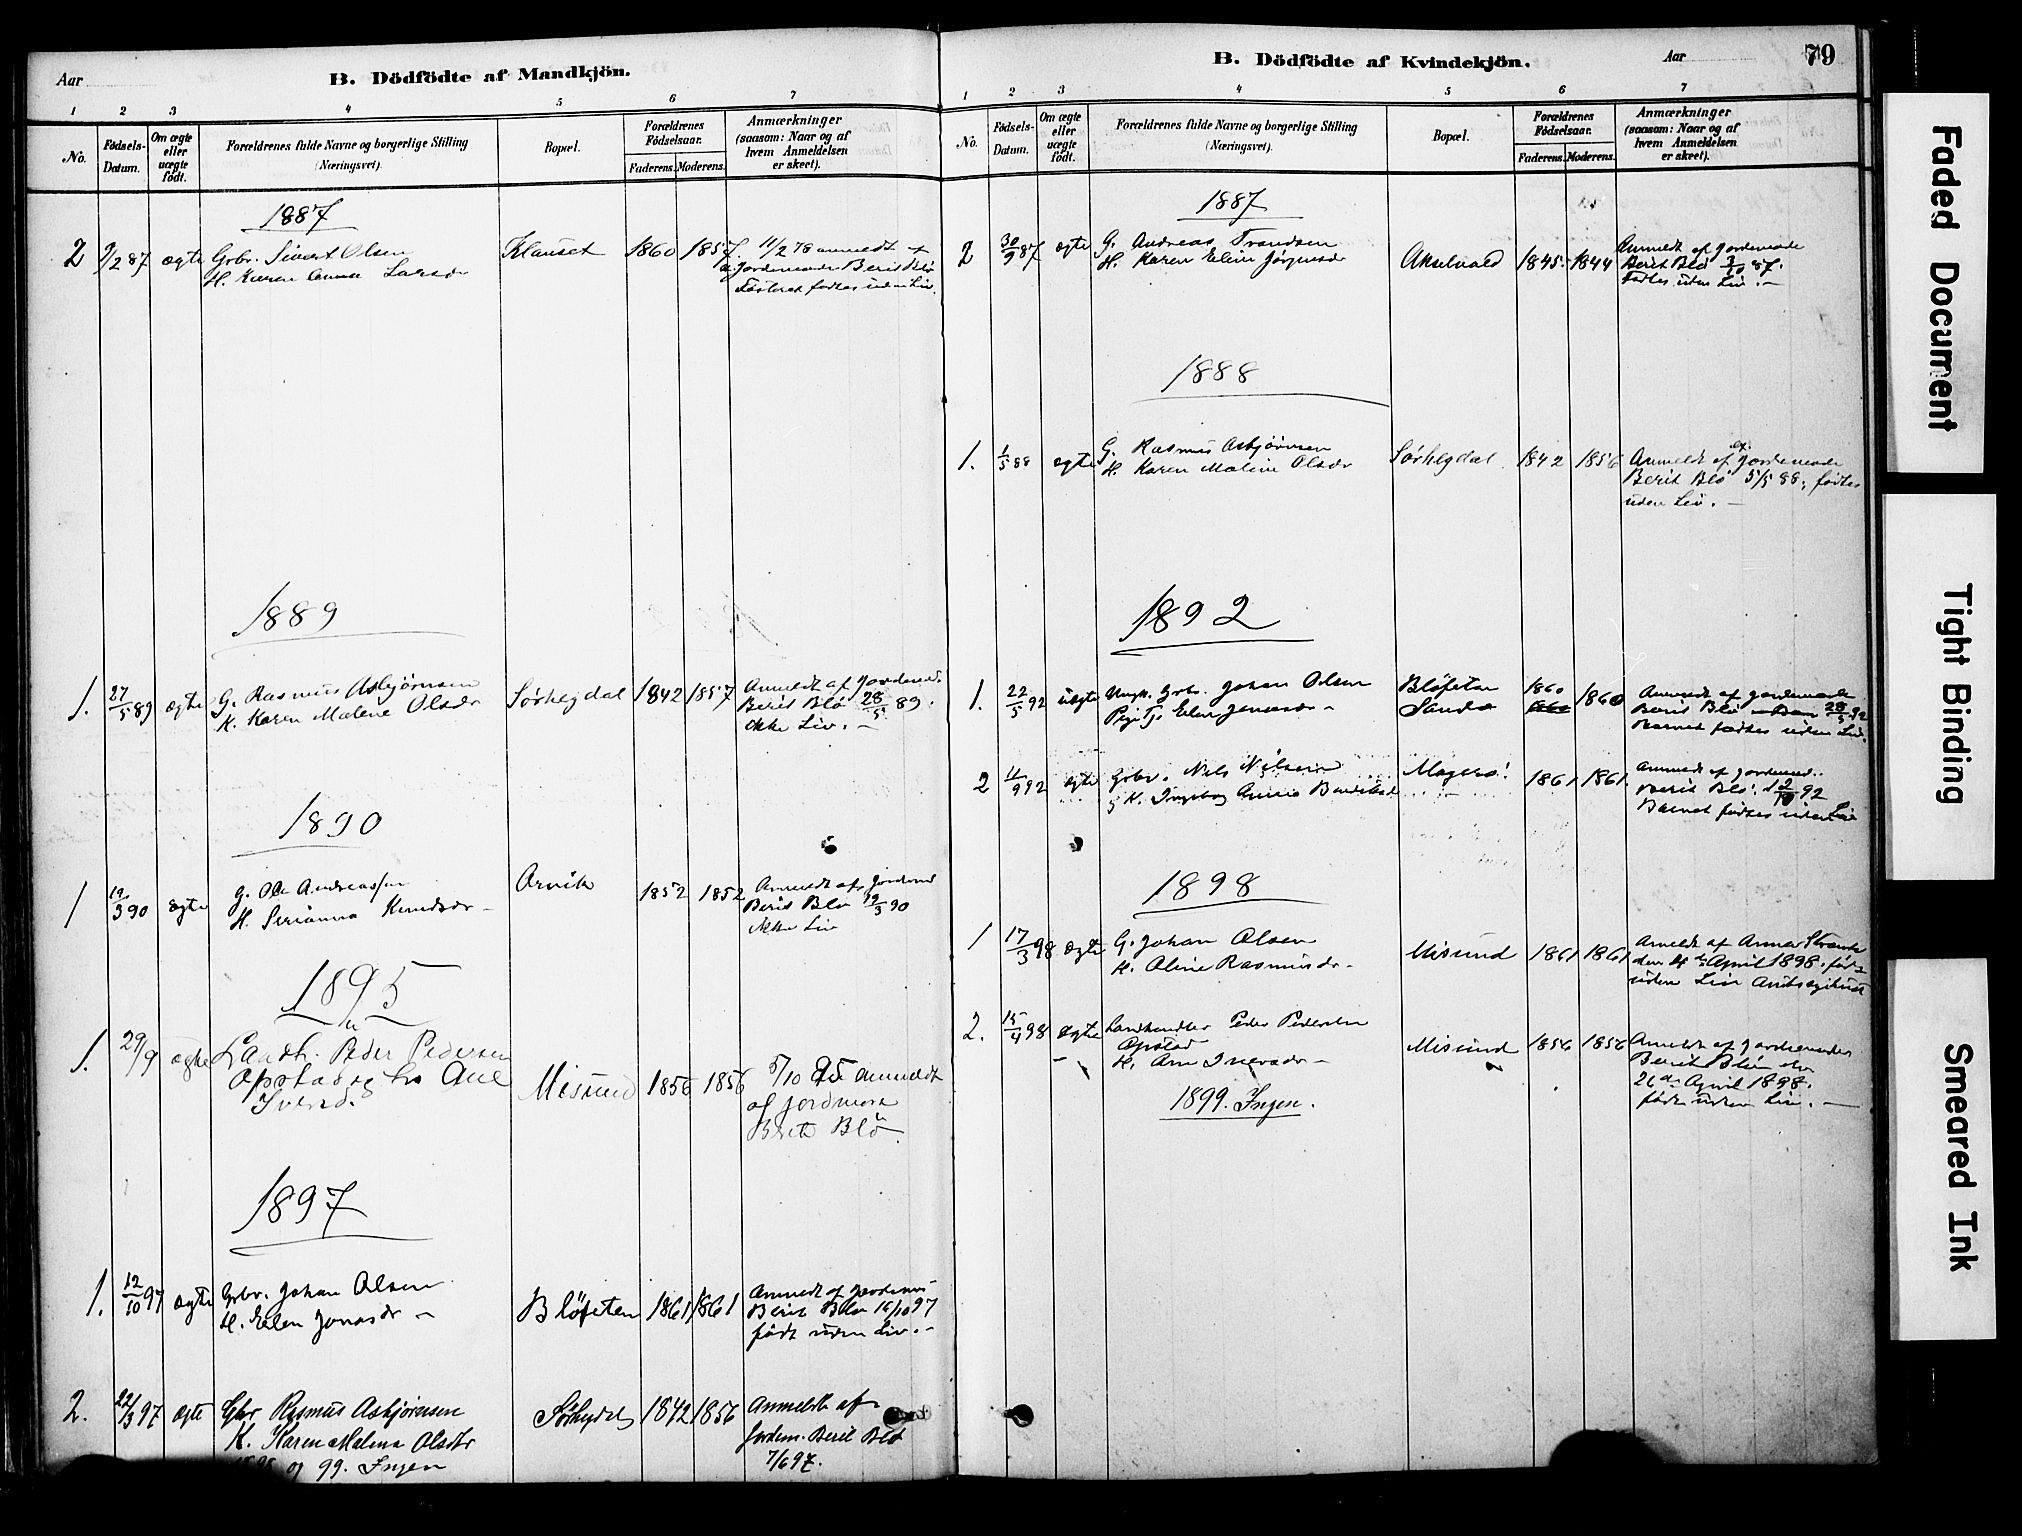 Aar
B. Dödfödte af Mandkjön.
1 2 3 4 5 6 7
No.
Födsels-
Datum.
Om ægte
eller
uægte
födt.
Forældrenes fulde Navne og borgerlige Stilling
(Næringsvei).
Bopæl.
Forældrenes
Födselsaar.
Faderens. Moderens.
Anmærkninger
(saasom: Naar og af
hvem Anmeldelsen
er skeet).
1887
2 9/2 87 ægte Grbr. Sivert Olsen
H. Karen Anna Larsdr
Klauset 1860 1857
11/2 78 anmeldt
Jordemoder Berit Blø
Fosteret fødtes uden Liv.
1889
1. 27/5 89 ægte G. Rasmus Asbjørnsen
K. Karen Malene Olsdr
Sørhegdal 1842 1857
Anmeldt af Jordemod.
Berit Blø 28/5 89.
ikke Liv. —
1890
1 19/3 90 ægte G. Ole Andreassen
H. Serianna Knudsdr —
Arvik 1852 1852
Anmeldt af Jordemod
Berit Blø 19/3 90
ikke Liv
1895
1. 29/9 ægte Landh. Peder Pedersen
Opstad og h. Ane
Iversd.
Misund 1856 1856
5/10 95 anmeldt
af Jordmora
Berit Blø
1897
1. 12/10 97 ægte Grbr. Johan Olsen
H. Elen Jonasdr —
Bløfeten 1861 1861
Anmeldt af Jordemor
Berit Blø 16/10 97
født uden Liv. —
2. 22/3 97 ægte Gbr Rasmus Asbjørnsen
K. Karen Malena Olsdtr
Sørhegdal 1842 1856
Anmeldt af
Jordem. Berit Blø
7/6 97.
og 99. Ingen
B. Dödfödte af Kvindekjön.
Aar
79
1 2 3 4 5 6 7
No.
Födsels-
Datum.
Om ægte
eller
uægte
födt.
Forældrenes fulde Navne og borgerlige Stilling
(Næringsvei).
Bopæl.
Forældrenes
Födselsaar.
Faderens. Moderens.
Anmærkninger
(saasom: Naar og af
hvem Anmeldelsen
er skeet).
1887
2 30/9 87 ægte G. Andreas Trondsen
H. Karen Elin Jørgensdr
Akselvold 1845 1844
Anmeldt af Jordemode
Berit Blø 3/10 87.
Fødtes uden Liv. —
1888
1. 1/5 88 ægte G. Rasmus Asbjørnsen
H. Karen Maline Olsdr
Sørhegdal 1842 1856
Anmeldt af Jordemode
Berit Blø 5/5 88, fødtes
uden Liv. —
1892
1. 22/5 92 uægte Ungk. Grbs. Johan Olsen
Pige Tj. Elen Jonasdr —
Bløfeten
Sanda
1860 1860
Anmeldt af Jordemode
Berit Blø 28/5 92
Barnet fødtes uden Liv.
2 11/9 92 ægte Grbr. Nils Nilsen
K. Ingebog
Magerø 1861 1861
Anmeldt af Jordemod.
Berit Blø 2/10 92
Barnet fødtes uden Liv
1898
1 17/3 98 ægte G. Johan Olsen
H. Oline Rasmusdr —
Misund 1861 1861
Anmeldt af Anna
den 4de April 1898. født
uden Liv
2. 15/4 98 ægte Landhandler Peder Pedersen
Opstad
H. Ane Iversdr —
Misund 1856 1856
Anmeldt af Jordemoder
Berit Blø den
26de April 1898.
født uden Liv. —
1899. Ingen.
Faded Document
Tight Binding
Smeared Ink